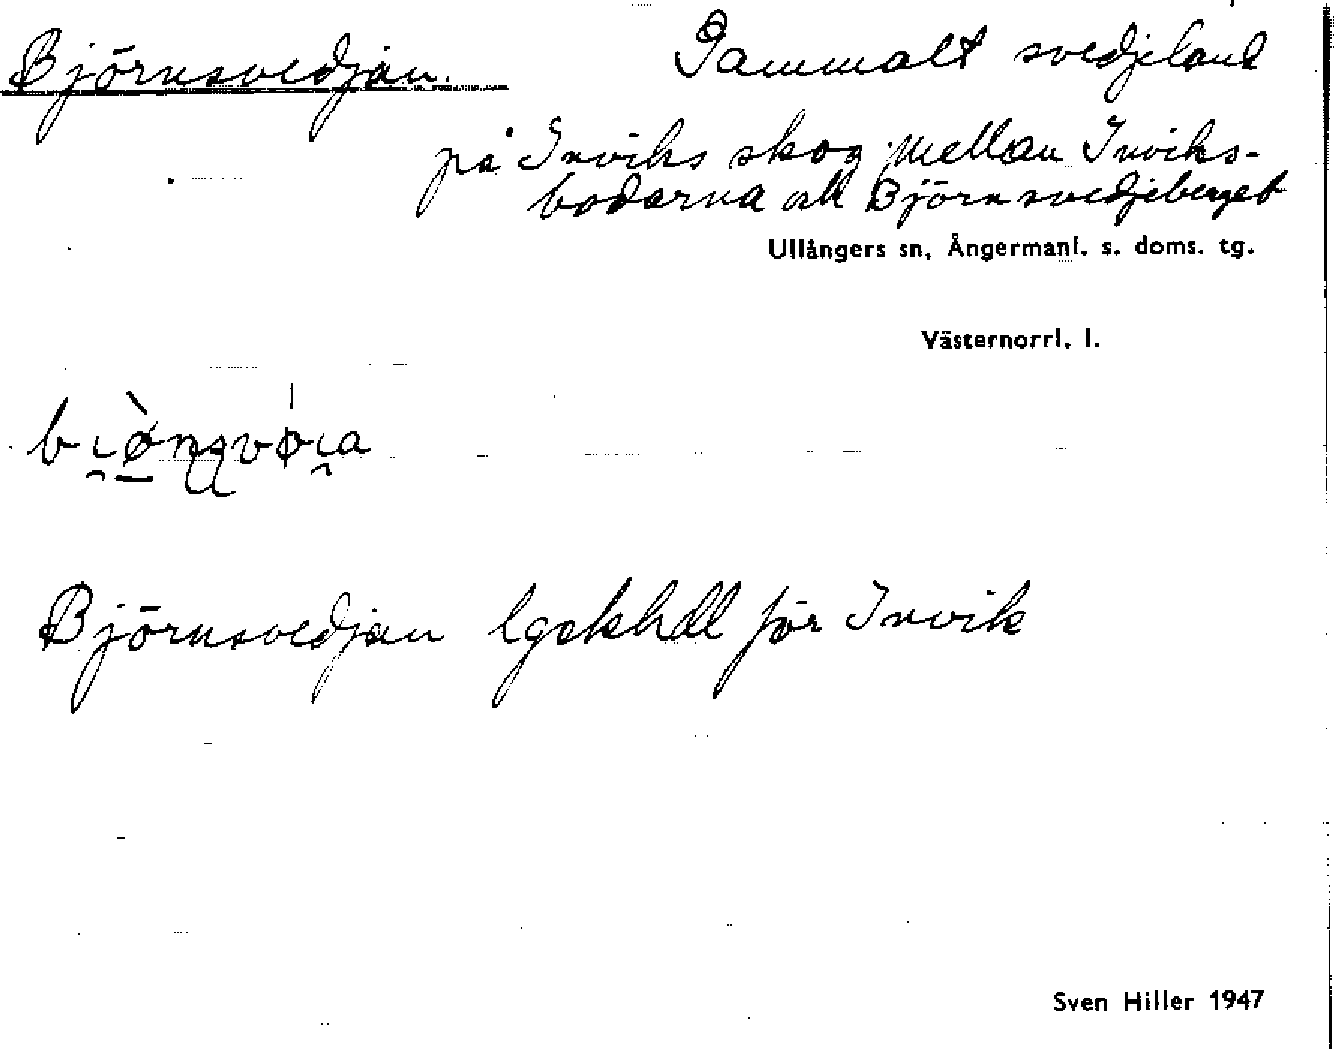 Björnsvedjan. Gammalt svedjeland
på Inviks skog mellan Inviks-
bodarna och Björnsvedjeberget
Ullångers sn, Ångermanl. s. doms. tg.
Västernorrl. l.
Björnsvedjan lgdskhdl för Invik
Sven Hiller 1947